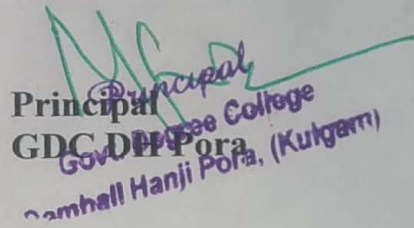 Principal
GDC DH Pora
Principal
Govt Degree College
Damhall Hanji Pora, (Kulgam)